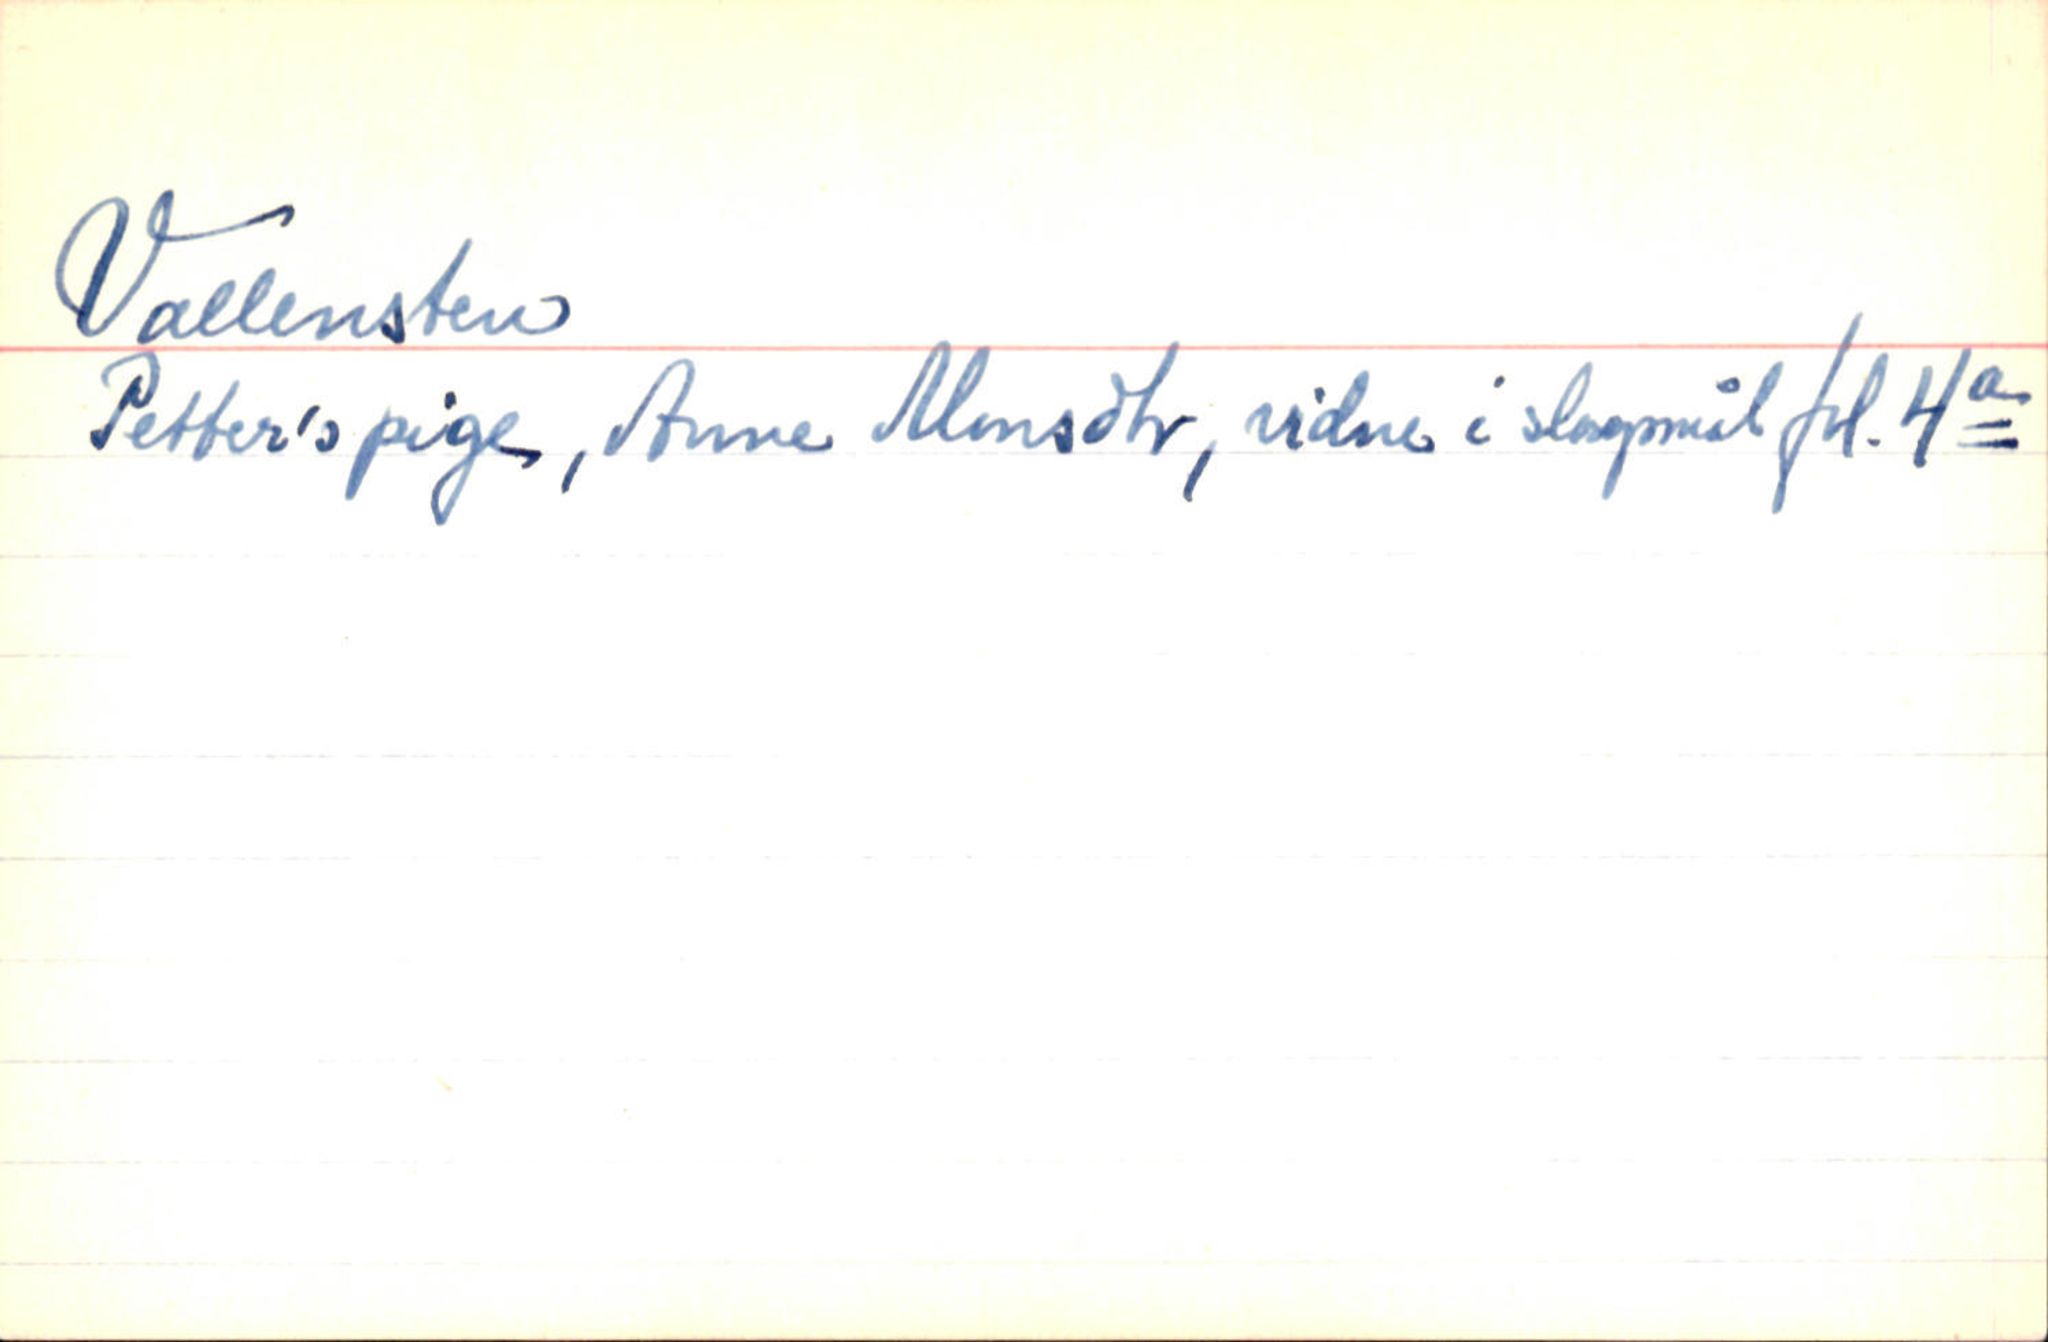 Vallensten
Petter's pige, Anne Monsdtr, vidne i slagsmål fol. 4a